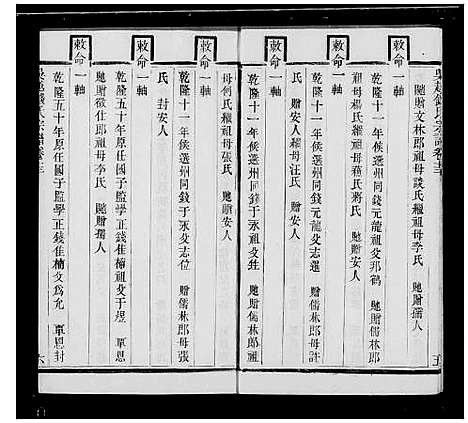 吳越錢氏宗譜卷
馳贈文林郎祖母談氏繼祖母李氏 馳贈孺人
敕命一軸
乾隆十一年候選州同錢元龍祖父邦鶴 馳贈儒林郎
祖母楊氏繼祖母蔣氏 馳贈安人
敕命一軸
乾隆十一年候選州同錢元龍父志選 贈儒林郎母許
氏 贈安人繼母汪氏 贈安人
敕命一軸
乾隆十一年候選州同錢于永祖父 馳贈儒林郎祖
母何氏繼祖母張氏 馳贈安人
敕命一軸
乾隆十一年候選州同錢于永父志位 贈儒林郎母張
氏 封安人
敕命一軸
乾隆五十年原任國子監學正錢佳楠祖父于煜 覃恩
馳贈徵仕郎祖母李氏 馳贈孺人
敕命一軸
乾隆五十年原任國子監學正錢佳楠父為允 覃恩封
六